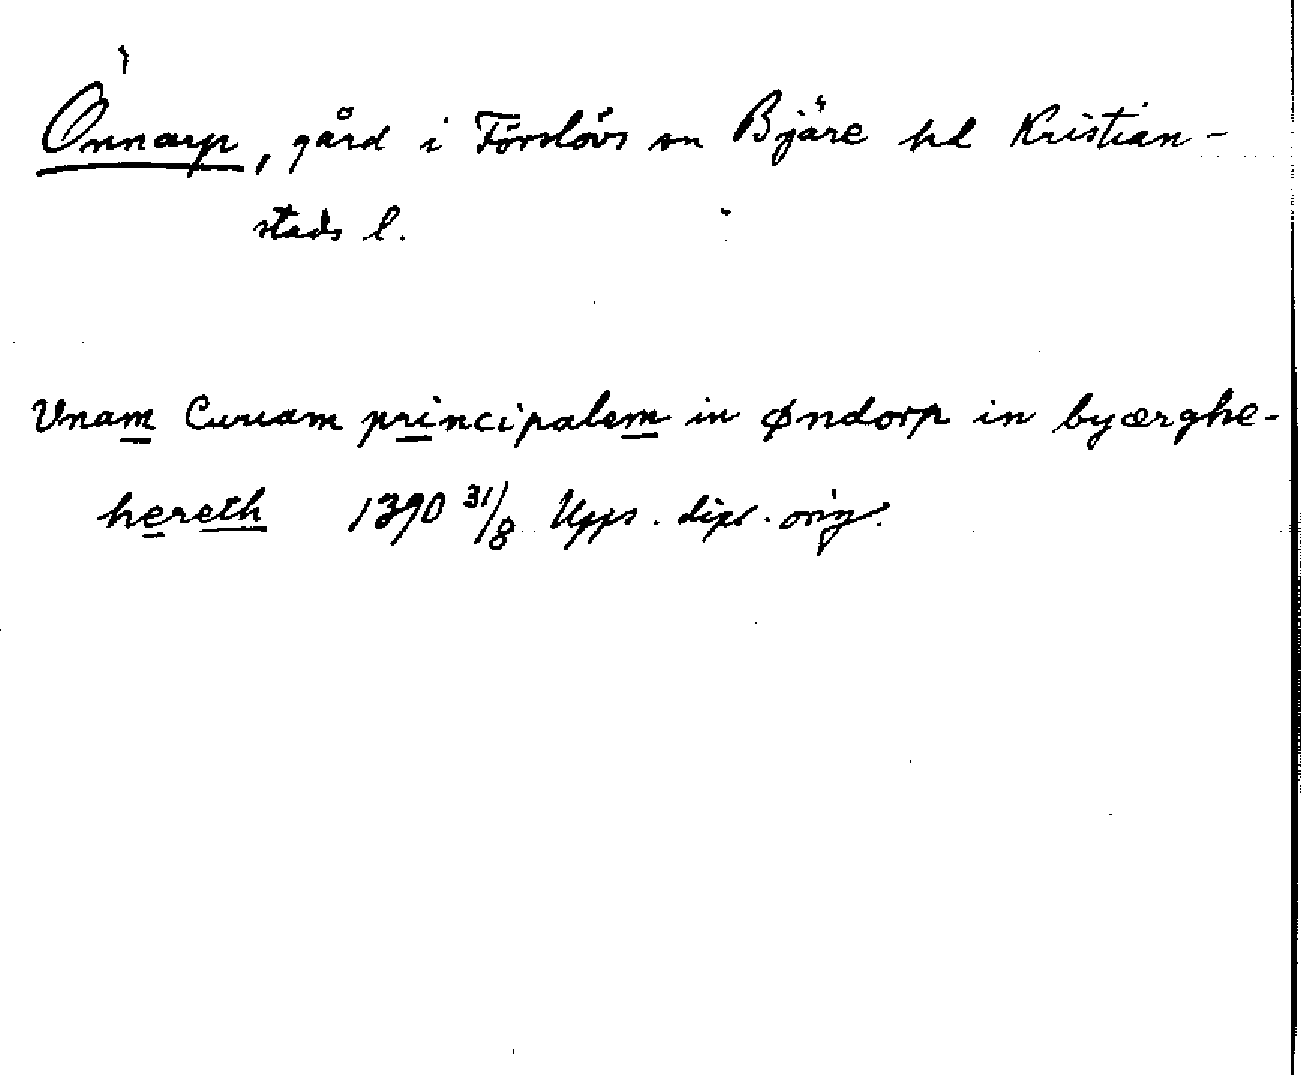 Önnarp, gård i Förslövs sn Bjäre hd Kristian-
stads l.
Unam Curiam principalem in øndorp in byærghe-
hereth 1390 31/8 Upps. dipl. orig.